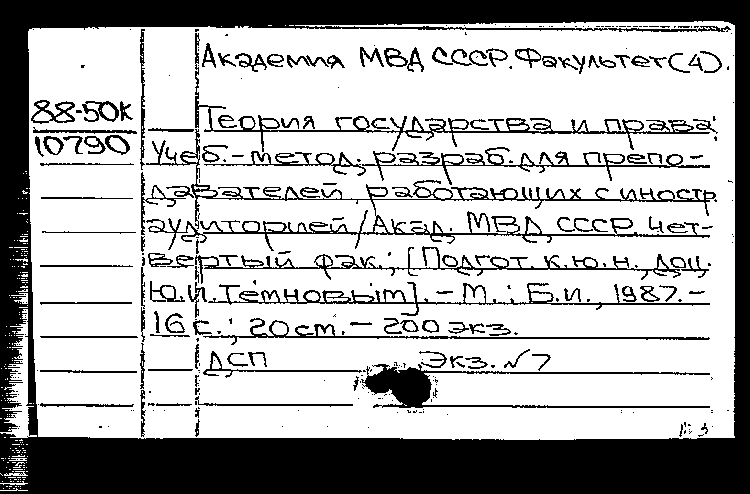 Академия МВД СССР. Факультет (4).
88-50К
10790
Теория государства и права:
Учеб.-метод. разраб. для препо-
давателей, работающих с иностр.
аудиторией / Акад. МВД СССР. Чет-
вертый фак.; [Подгот. к.ю.н., доц.
Ю.И. Темновым]. - М. : Б.и., 1987. -
16 с.; 20 см. - 200 экз.
ДСП Экз. № 7